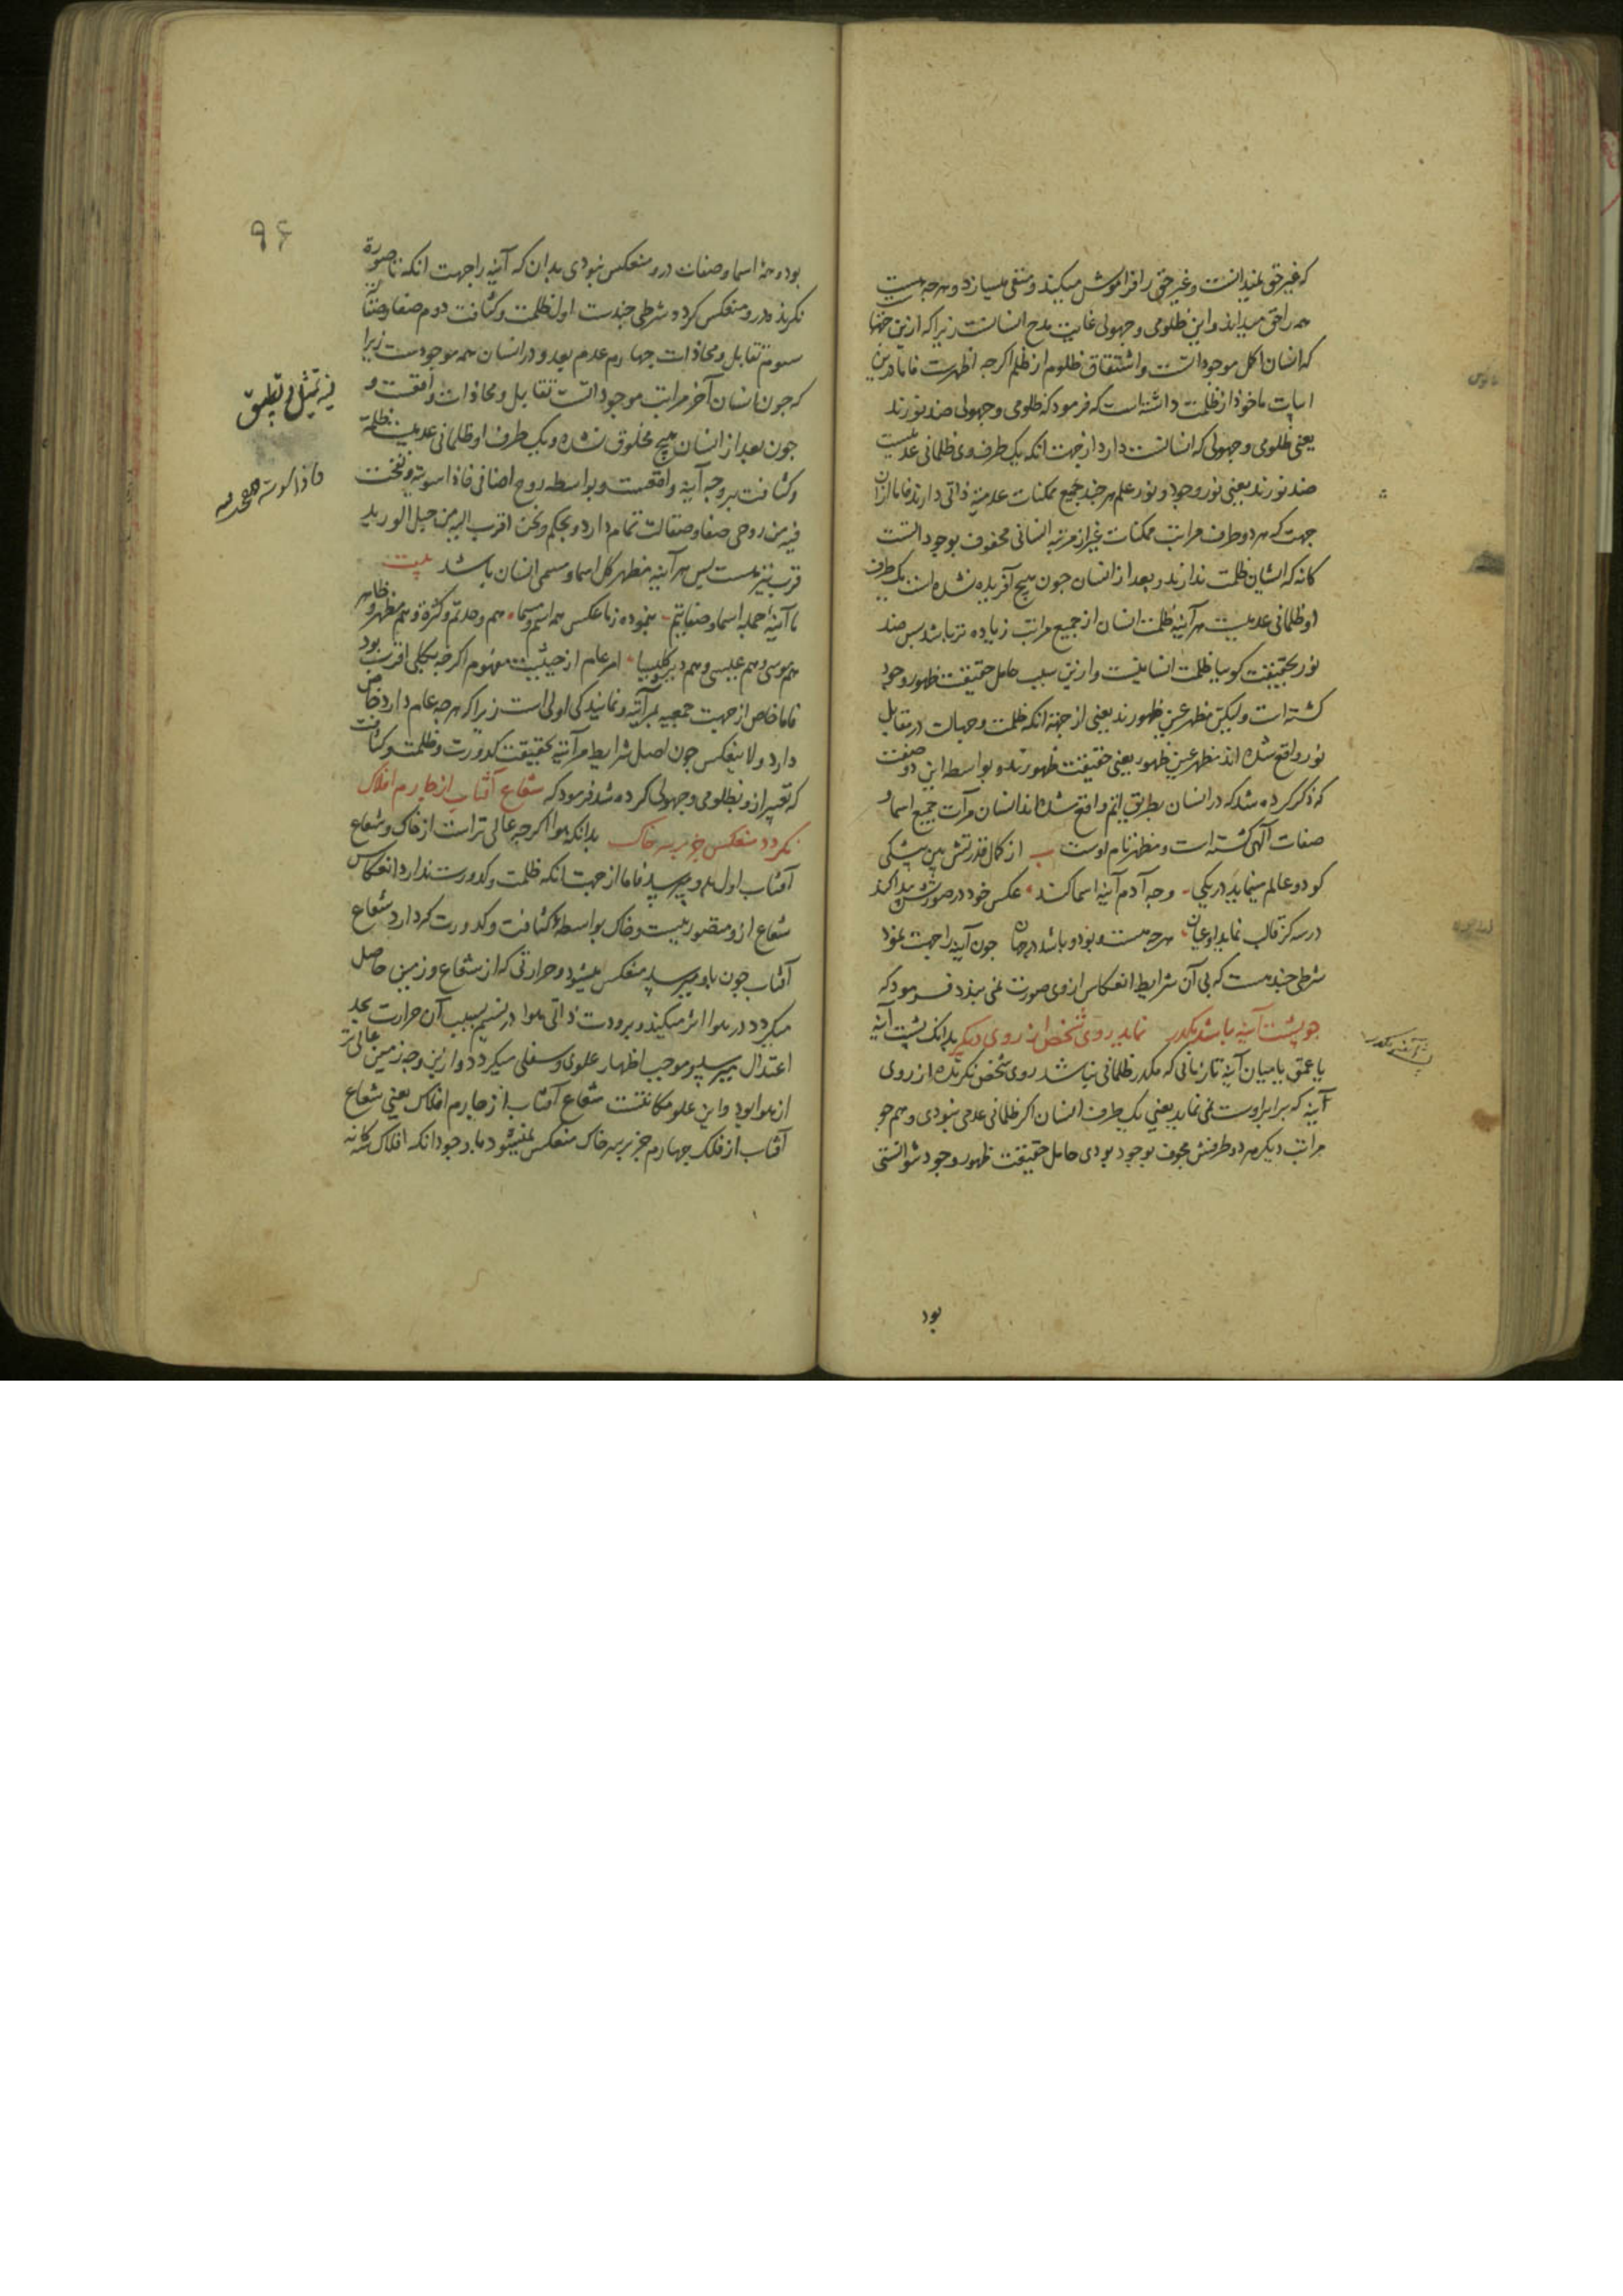 که غیر حق نمیدانست و غیر حق را فراموش میکند و منفی میسازد و هرچه هست
همه را حق میداند و این ظلومی و جهولی غایت مدح انسانست زیرا که ازین جهتها
که انسان اکمل موجوداتست و اشتقاق ظلوم از ظلم اکرچه اظهرست فاما درین
ابیات ماخوذ از ظلمت داشته است که فرمود که ظلومی و جهولی ضد نورند
یعنی ظلومی و جهولی که انسانست دارد از جهت انکه یک طرف وی ظلمانی عدمیست
ضد نورند یعنی نور وجود و نور علم هرچند جمیع ممکنات عدمیة ذاتی دارند فاما از آن
جهت که هر دو طرف مراتب ممکنات غیر از مرتبه انسانی محفوف بوجوداتست
کانه که ایشان ظلمت ندارند و بعد از انسان چون هیچ آفریده نشده است یک طرف
او ظلمانی عدمیست هر آینه ظلمت انسان از جمیع مراتب زیاده تر باشد پس ضد
نور بحقیقت کوییا ظلمت انسانیست و ازین سبب حامل حقیقت ظهور وجود
کشته است ولیکن مظهر عین ظهورند یعنی از جهة انکه ظلمت و جهالت در مقابل
نور واقع شده اند مظهر عین ظهور یعنی حقیقت ظهورند و بواسطه این دو صفت
که ذکر کرده شد که در انسان بطریق اتم واقع شده اند انسان مرآت جمیع اسما و
صفات آلهی کشته است و مظهر تام اوست از کمال قدرتش بین بیشکی
کو دو عالم مینماید در یکی وجه آدم آینه اسما کند عکس خود در صورتش پیدا کند
در سه کز قالب نماید او عیان هرچه هست و بود و باشد در جهان چون آینه را جهت نمود
شرطی چندهست که بی آن شرایط انعکاس از وی صورت نمی بندد فرمود که
چو پشت آینه باشد مکدر نماید روی شخص از روی دیکر بدانک پشت آینه
یا عمق یا میان آینه تا زمانی که مکدر ظلمانی نباشد روی شخص نکرنده از روی
آینه که برابر اوست نمی نماید یعنی یک طرف انسان اکر ظلمانی عدمی نبودی و هم چو
مراتب دیکر هر دو طرفش محفوف بوجود بودی حامل حقیقت ظهور وجود نتوانستی
بود
پشت آینه مکدر
۹۶
بود و همه اسما و صفات درو منعکس نبودی بدان که آینه را جهت انکه تا صورة
نکرنده درو منعکس کردد شرطی چندست اول ظلمت و کثافت دوم صفا و صقالت
سوم تقابل و محاذات چهارم عدم بعد و در انسان همه موجودست زیرا
که چون انسان آخر مراتب موجوداتست تقابل و محاذات واقعست و
چون بعد از انسان هیچ مخلوق نشده و یک طرف او ظلمانی عدمیست ظلمة
و کثافت بر وجه آینه واقعست و بواسطه روح اضافی فاذا سویته و نفخت
فیه من روحی صفا و صقالت تمام دارد و بحکم و نحن اقرب الیه من حبل الورید
قرب نیز هست پس هر آینه مظهر کل اسما و مسمی انسان باشد بیت
ما آینهٔ جمله اسما و صفاتیم بنموده ز ما عکس همه اسم و مسما هم وحدتم و کثرة و هم مظهر و ظاهر
هم موسی و هم عیسی و هم دیر کلیسا امر عام از حیثیت مفهوم اکرچه بکلی اقرب بود
فاما خاص از جهت جمعیه بمرآتیه و نمایندکی اولی است زیرا که هرچه عام دارد خاص
دارد ولا ینعکس چون اصل شرایط مرآتیه بحقیقت کدورت و ظلمت و کثافت
که تعبیر ازو بظلومی و جهولی کرده شد فرمود که شعاع آفتاب از چارم افلاک
نکردد منعکس جز بر سر خاک بدانکه هوا اکرچه عالی تر است از خاک و شعاع
آفتاب اول بدو میرسد فاما از جهت انکه ظلمت و کدورت ندارد انعکاس
شعاع ازو متصور نیست و خاک بواسطهٔ کثافت و کدورت که دارد شعاع
آفتاب چون باو میرسد منعکس میشود و حرارتی که از شعاع و زمین حاصل
میکردد در هوا اثر میکند و برودت ذاتی هوا در نسیم بسبب آن حرارت بحد
اعتدال میرسد و موجب اظهار علوی و سفلی میکردد و ازین وجه زمین عالی تر
از هوا بود و این علو مکانتست شعاع آفتاب از چارم افلاک یعنی شعاع
آفتاب از فلک چهارم جز بر سر خاک منعکس نمیشود با وجود انکه افلاک سه کانه
فیه تمثیل و تطبیق